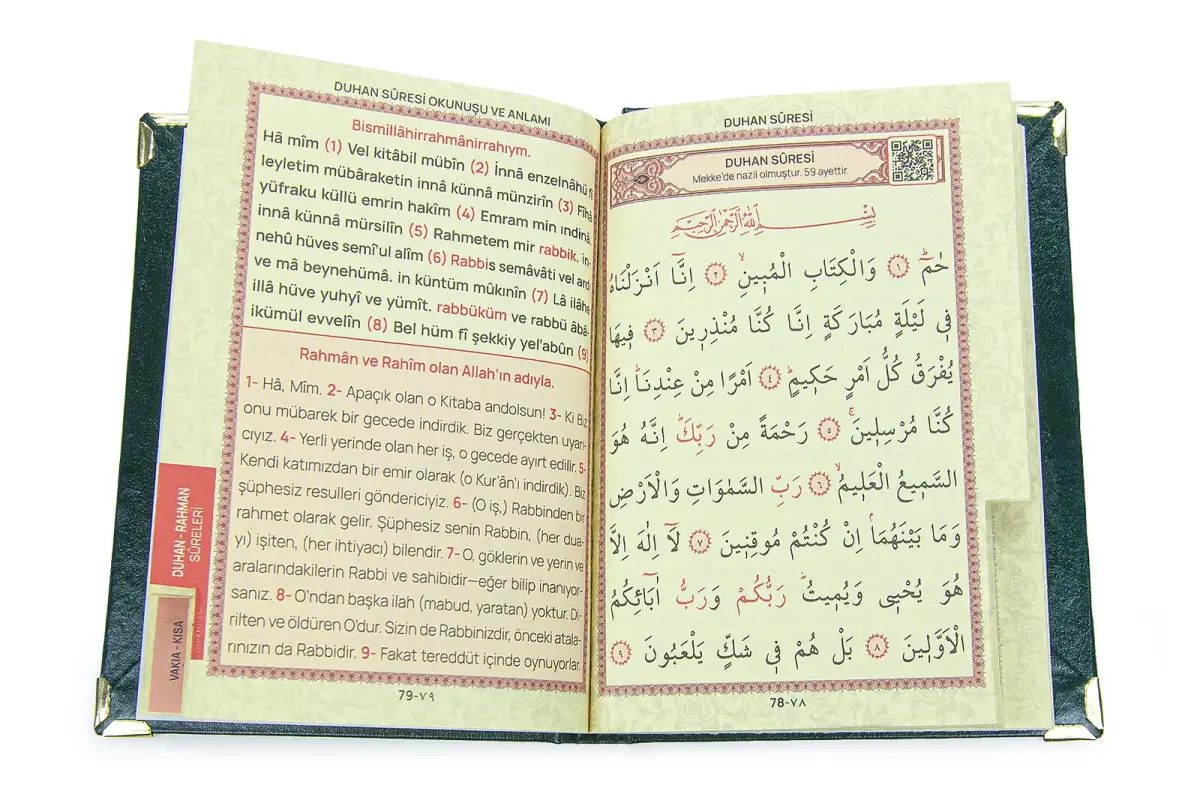 DUHAN SÛRESİ
DUHAN SÛRESİ
Mekke'de nazil olmuştur. 59 ayettir.
بِسْــــــمِ اللّٰهِ الرَّحْمٰنِ الرَّحٖيمِ
حٰمٓ ۚ ﴿١﴾ وَالْكِتَابِ الْمُبٖينِ ۙ ﴿٢﴾ اِنَّٓا اَنْزَلْنَاهُ
فٖي لَيْلَةٍ مُبَارَكَةٍ اِنَّا كُنَّا مُنْذِرٖينَ ﴿٣﴾ فٖيهَا
يُفْرَقُ كُلُّ اَمْرٍ حَكٖيمٍ ۙ ﴿٤﴾ اَمْرًا مِنْ عِنْدِنَا ۜ اِنَّا
كُنَّا مُرْسِلٖينَ ۚ ﴿٥﴾ رَحْمَةً مِنْ رَبِّكَ ۜ اِنَّهُ هُوَ
السَّمٖيعُ الْعَلٖيمُ ۙ ﴿٦﴾ رَبِّ السَّمٰوَاتِ وَالْاَرْضِ
وَمَا بَيْنَهُمَا ۢ اِنْ كُنْتُمْ مُوقِنٖينَ ﴿٧﴾ لَٓا اِلٰهَ اِلَّا
هُوَ يُحْيٖي وَيُمٖيتُ ۜ رَبُّكُمْ وَرَبُّ اٰبَٓائِكُمُ
الْاَوَّلٖينَ ﴿٨﴾ بَلْ هُمْ فٖي شَكٍّ يَلْعَبُونَ ﴿٩﴾
78-٧٨
DUHAN SÛRESİ OKUNUŞU VE ANLAMI
Bismillâhirrahmânirrahıym.
Hâ mîm (1) Vel kitâbil mübîn (2) İnnâ enzelnâhü fî
leyletim mübâraketin innâ künnâ münzirîn (3) Fîhâ
yüfraku küllü emrin hakîm (4) Emram min ındinâ,
innâ künnâ mürsilîn (5) Rahmetem mir rabbik. in-
nehû hüves semî'ul alîm (6) Rabbis semâvâti vel ard
ve mâ beynehümâ. in küntüm mûkınîn (7) Lâ ilâhe
illâ hüve yuhyî ve yümît. rabbüküm ve rabbü âbâ-
ikümül evvelîn (8) Bel hüm fî şekkiy yel'abûn (9)
Rahmân ve Rahîm olan Allah'ın adıyla.
1- Hâ, Mîm. 2- Apaçık olan o Kitaba andolsun! 3- Ki Biz
onu mübarek bir gecede indirdik. Biz gerçekten uyarı-
cıyız. 4- Yerli yerinde olan her iş, o gecede ayırt edilir. 5-
Kendi katımızdan bir emir olarak (o Kur'ân'ı indirdik). Biz
şüphesiz resulleri göndericiyiz. 6- (O iş,) Rabbinden bir
rahmet olarak gelir. Şüphesiz senin Rabbin, (her dua-
yı) işiten, (her ihtiyacı) bilendir. 7- O, göklerin ve yerin ve
aralarındakilerin Rabbi ve sahibidir—eğer bilip inanıyor-
sanız. 8- O'ndan başka ilah (mabud, yaratan) yoktur. Di-
rilten ve öldüren O'dur. Sizin de Rabbinizdir, önceki atala-
rınızın da Rabbidir. 9- Fakat tereddüt içinde oynuyorlar.
79-٧٩
DUHAN - RAHMAN
SÛRELERİ
VAKIA - KISA